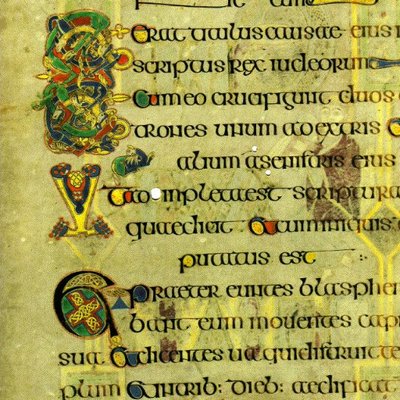 Et erat titulus causae eius i
scriptus rex iudeorum
Et cum eo crucifigunt duos
trones unum adextris
alium asinistris eius
Et adimpleta est scriptura
quae dicit et cum iniquis
putatus est
Et praeter euntes blasphe
bant eum mouentes capi
sua et dicentes ua qui distruit te
plum et in trib: dieb: aedificat